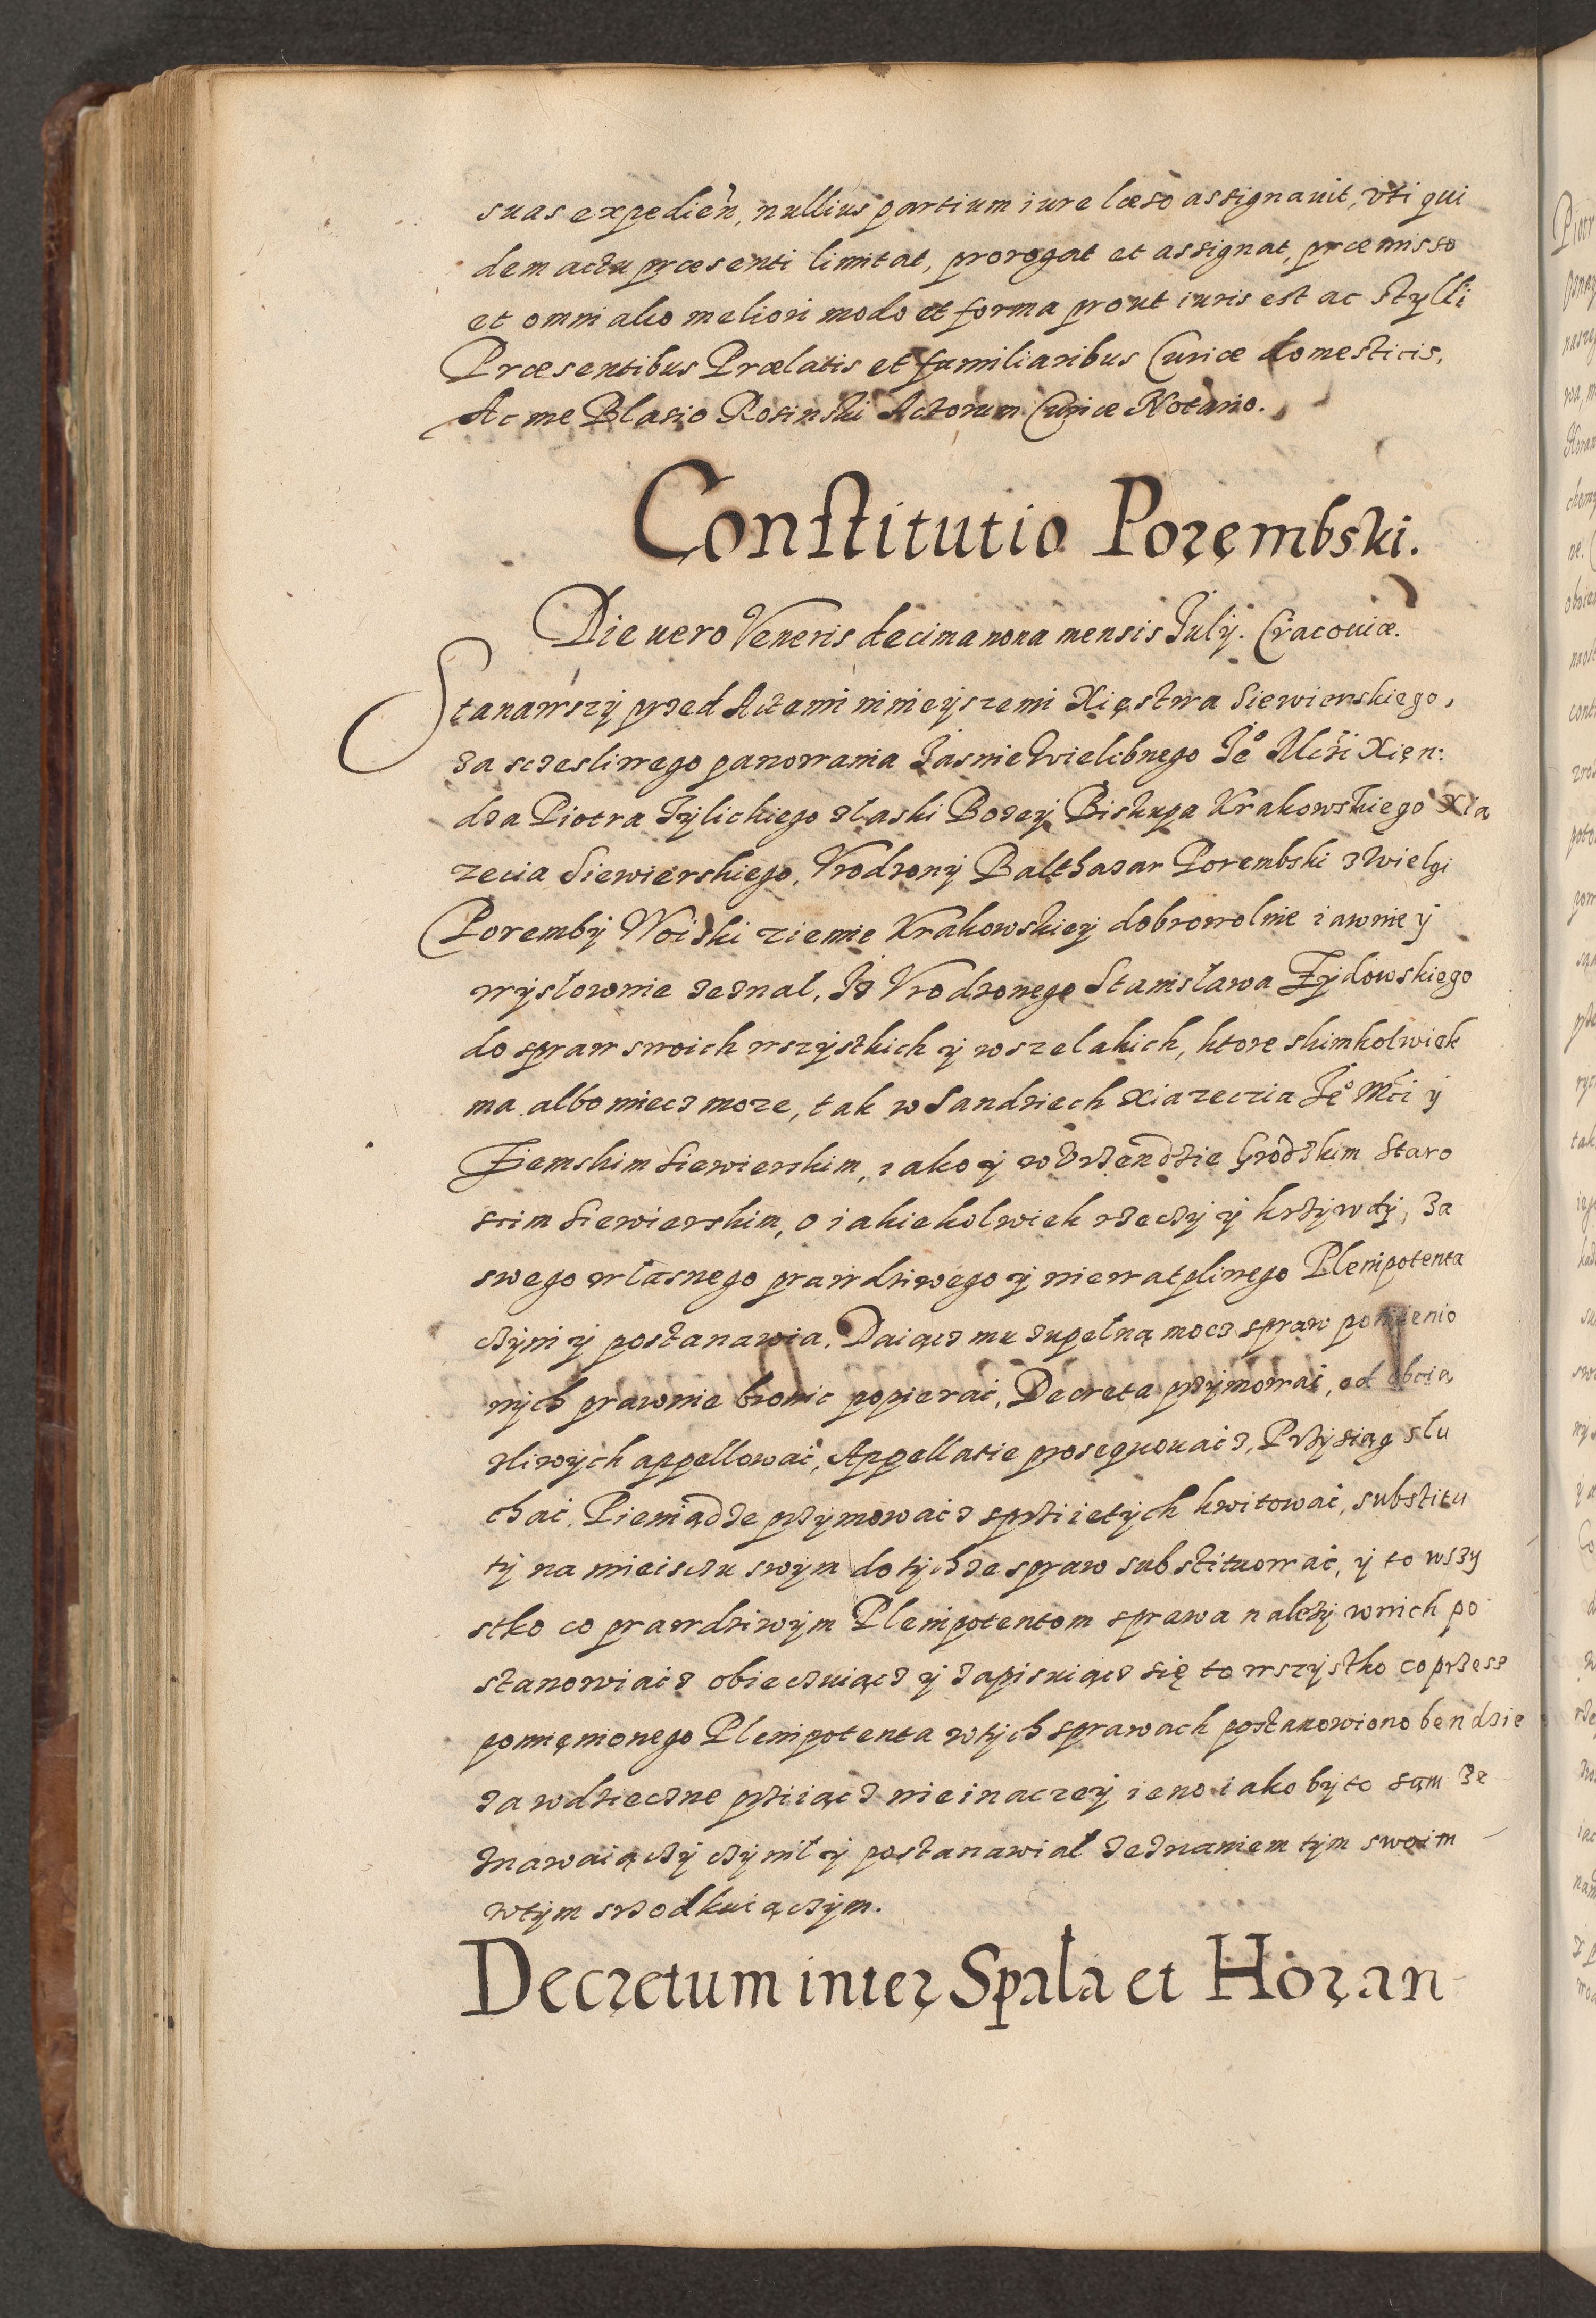 suas expedień, nullius partium iure læso assignavit, vti qui
dem actu præsenti limitat, prorogat et assignat, præmisso
et omni alio meliori modo et forma prout iuris est ac stylli
Præsentibus Prælatis et familiaribus Curiæ domesticis,
Ac me Blasio Rosinski Actorum Curiæ Notario.
Constitutio Porembski.
Die uero Veneris decima nona mensis Julij. Cracouiæ.
Stanawszy przed Actami ninieyszemi Xięstwa Siewierskiego,
za sczesliwego panowania Jasnie Wielebnego Je° Mczi Xięn:
dza Piotra Tylickiego złaski Bozey Biskupa Krakowskiego Xia
zecia Siewierskiego, Vrodzony Balthazar Porembski zwielgi
Poremby Woiski ziemie Krakowskiey dobrowolnie iawnie y
wysłownie zeznał, Jz Vrodzonego Stanisława Zydowskiego
do spraw swoich wszystkich y wszelakich, ktore skimkolwiek
ma albo miecz moze, tak w Sandziech Xiazeczia Je° Mći y
Ziemskim Siewierskim, iako y w Vrzendzie Grodzkim Staro
scim Siewierskim, o iakiekolwiek rzeczy y krzywdy, za
swego własnego prawdziwego y niewatpliwego Plenipotenta
czyni y postanawia, Daiącz mu zupełną mocz spraw pomienio
nych prawnie bronic popierać, Decreta przymować, od obcią
zliwych appellować, Appellatie prosequouacz, Przysiąg słu
chać, Pieniądze przymowacz zprziietych kwitować, substitu
ty na mieisczu swym do tychze spraw substituować, y to wszy
stko co prawdziwym Plenipotentom sprawa nalezy wnich po
stanowiacz obieczuiącz y zapisuiącz się to wszystko co przess
pomięnionego Plenipotenta wtych sprawach postanowiono bendzie
za wdzieczne prziiącz nie inaczey ieno iako by to sam ze
znawaiączy czynił y postanawiał zeznaniem tym swoim
wtym srzodkuiączym.
Decretum inter Spala et Horan